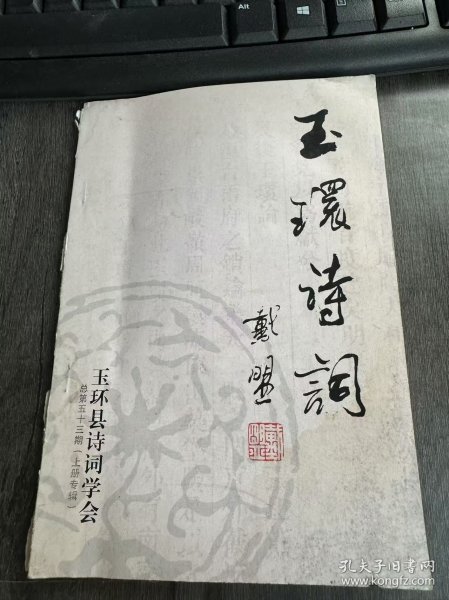 玉环诗詞
戴盟
玉环县诗词学会
总第五十三期（上册专辑）
Alt
孔夫子旧书网
www.kongfz.com